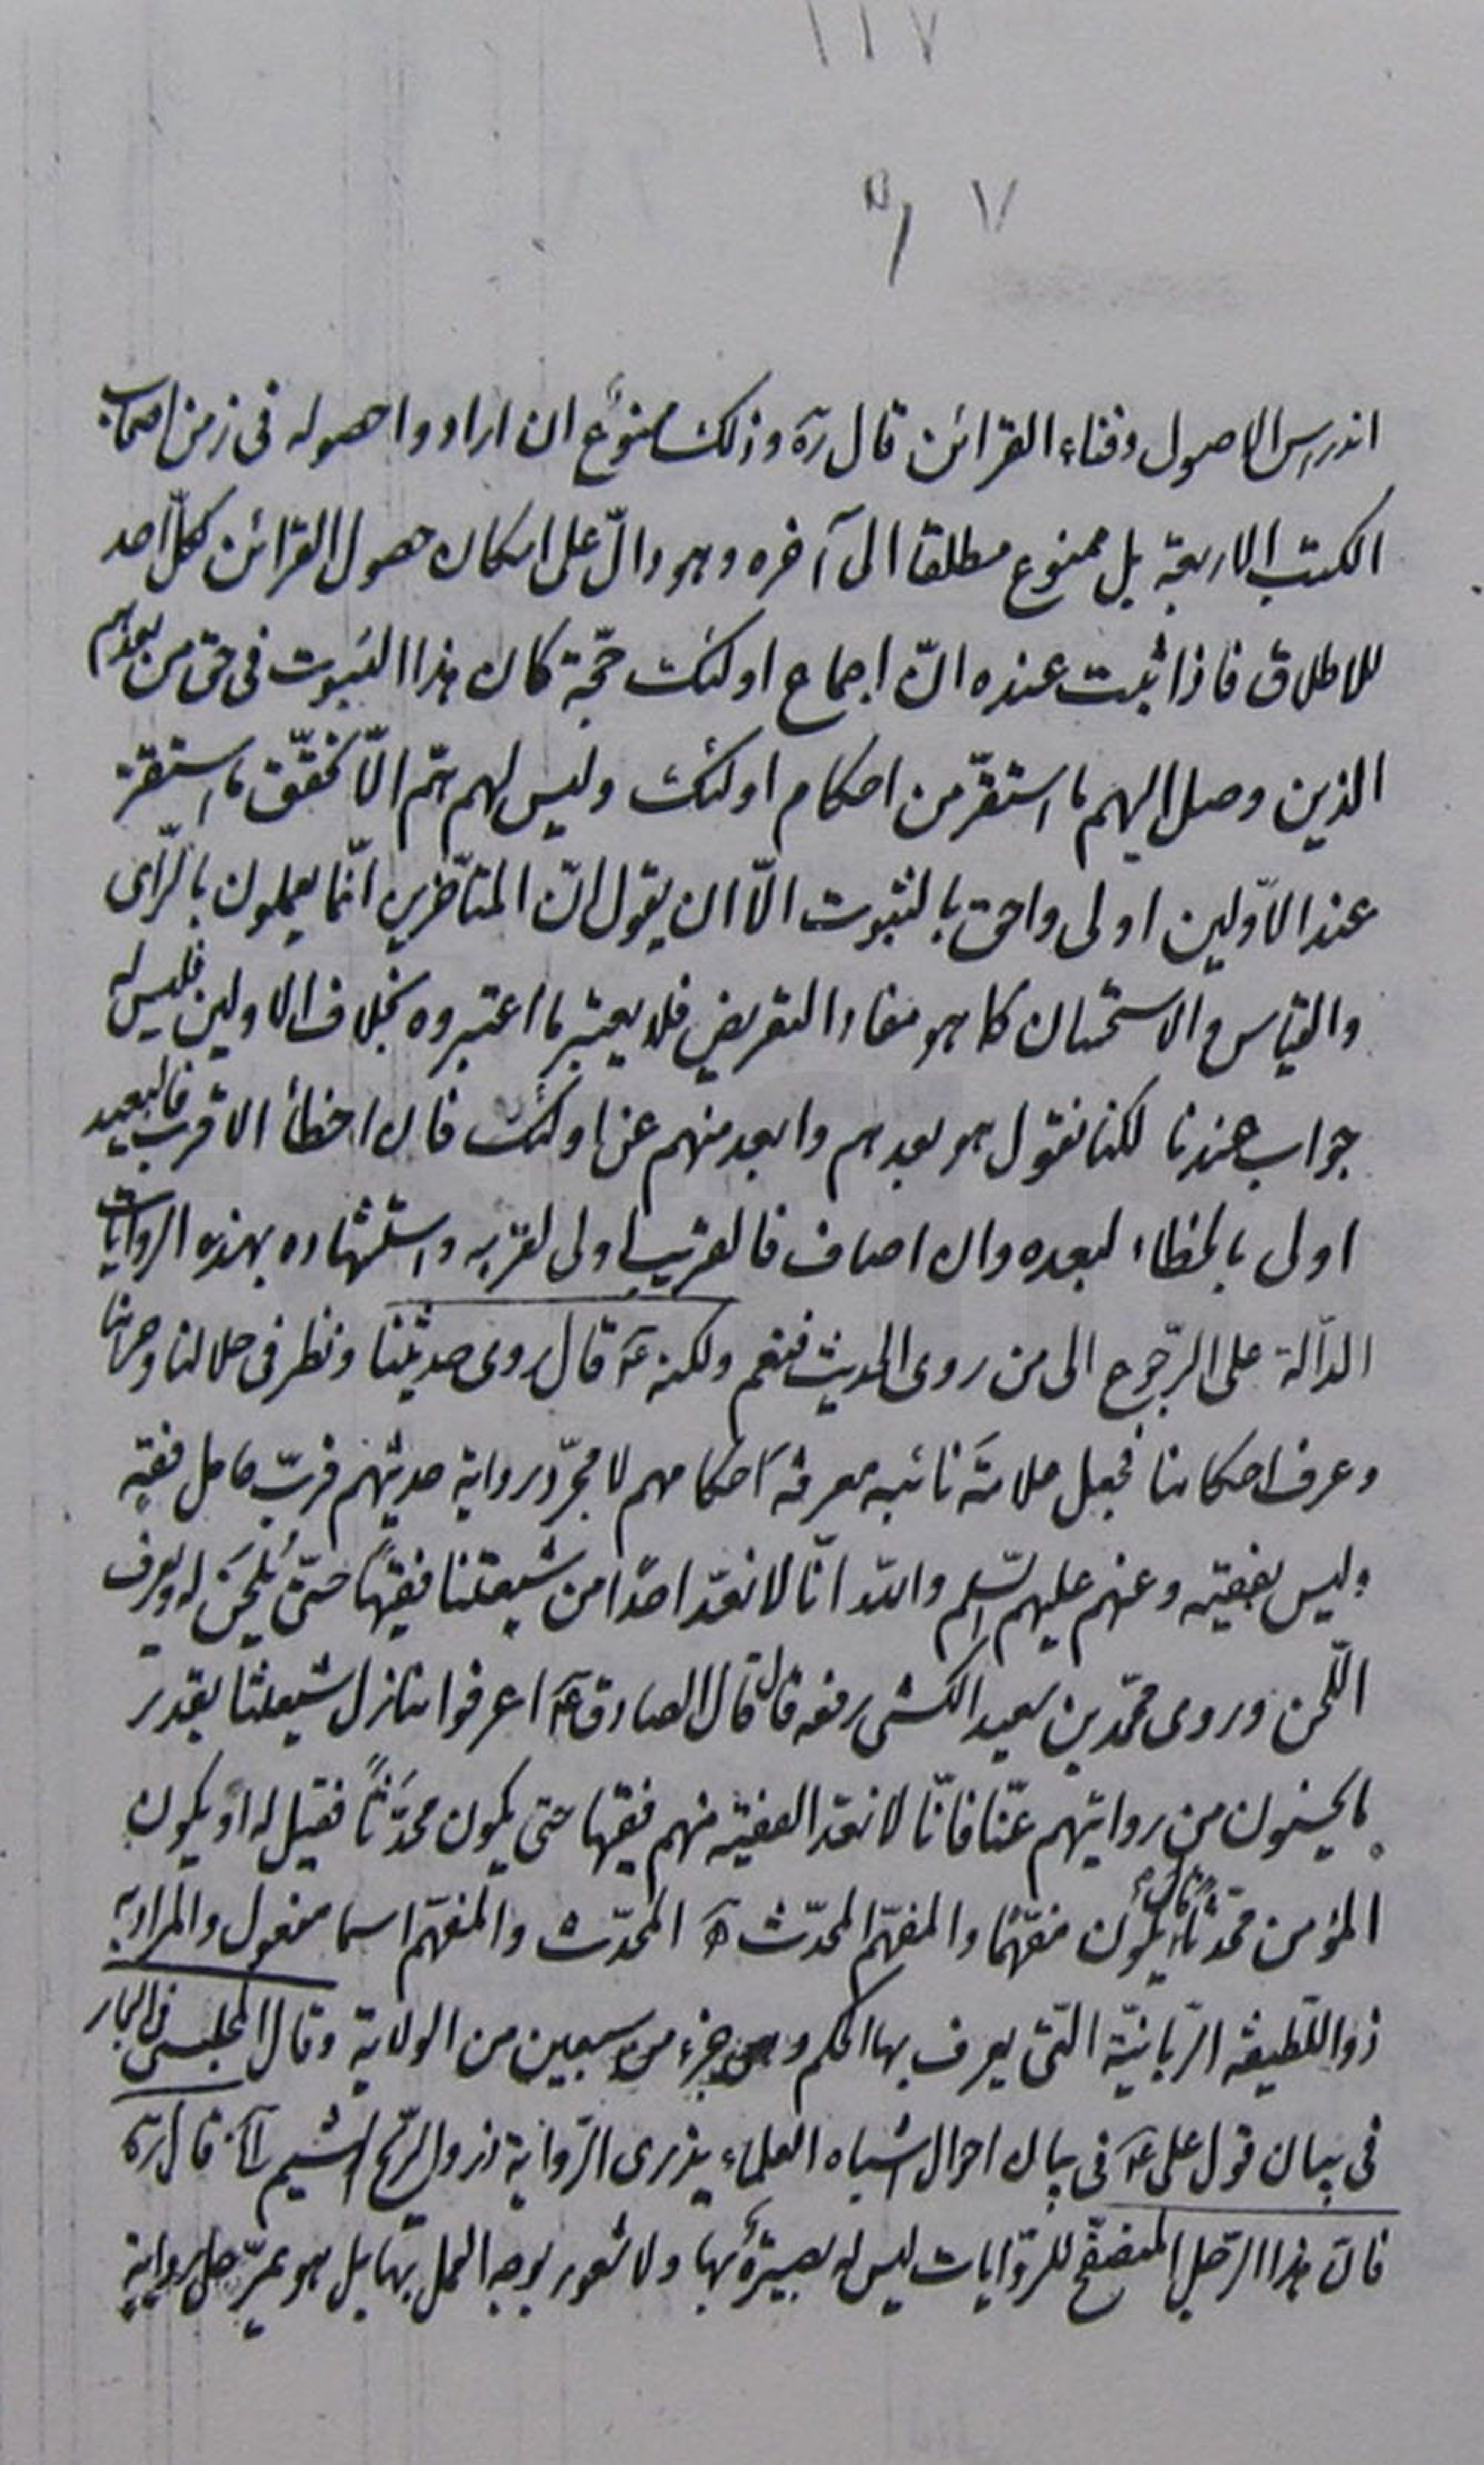 ١١٧
٧
اندرس الاصول وفناء القرائن قال ره وذلك ممنوع ان ارادوا حصوله فى زمن اصحاب
الكتب الاربعة بل ممنوع مطلقا الى آخره وهو دالّ على امكان حصول القرائن لكلّ احد
للاطلاق فاذا ثبت عنده انّ اجماع اولئك حجّة كان هذا الثبوت فى حق من بعدهم
الذين وصل اليهم ما استقرّ من احكام اولئك وليس لهم همّ الّا تحقّق ما استقرّ
عند الاوّلين اولى واحق بالثبوت الّا ان يقول انّ المتأخّرين انّما يعملون بالرّأى
والقياس والاستحسان كما هو مفاد التعريض فلا يعتبر ما اعتبروه بخلاف الاولين فليس له
جواب عندنا لكنا نقول هو بعدهم وابعد منهم عن اولئك فان اخطأ الاقرب فالبعيد
اولى بالخطاء لبعده وان اصاب فالقريب اولى لقربه واستشهاده بهذه الروايات
الدّالة على الرّجوع الى من روى الحديث فنعم ولكنه ع قال روى حديثنا ونظر فى حلالنا وحرامنا
وعرف احكامنا فجعل علامة نائبه معرفة احكامهم لا مجرّد رواية حديثهم فربّ حامل فقيه
وليس بفقيه وعنهم عليهم السّلم والله انّا لا نعدّ احدًا من شيعتنا فقيهًا حتّى يُلحَن له ويعرف
اللّحن وروى محمّد بن سعيد الكشى رفعه قال قال الصادق ع اعرفوا منازل شيعتنا بقدر
ما يحسنون من رواياتهم عنّا فانّا لا نعد الفقيه منهم فقيها حتى يكون محدَّثاً فقيل له او يكون
المؤمن محدّثاً قال يكون مفهّما والمفهّم المحدّث المحدّث والمفهّم اسما مفعول والمراد به
ذو اللّطيفة الرّبانيّة الّتى يعرف بها الحكم وهى جزء من سبعين من الولاية وقال المجلسى فى البحار
فى بيان قول على ع فى بيان احوال اشباه العلماء يذرى الرّواية ذرو الرّيح الهشيم قال ره
فانّ هذا الرّجل المتصفّح للرّوايات ليس له بصيرة بها ولا شعور بوجه العمل بها بل هو يمرّ على رواية